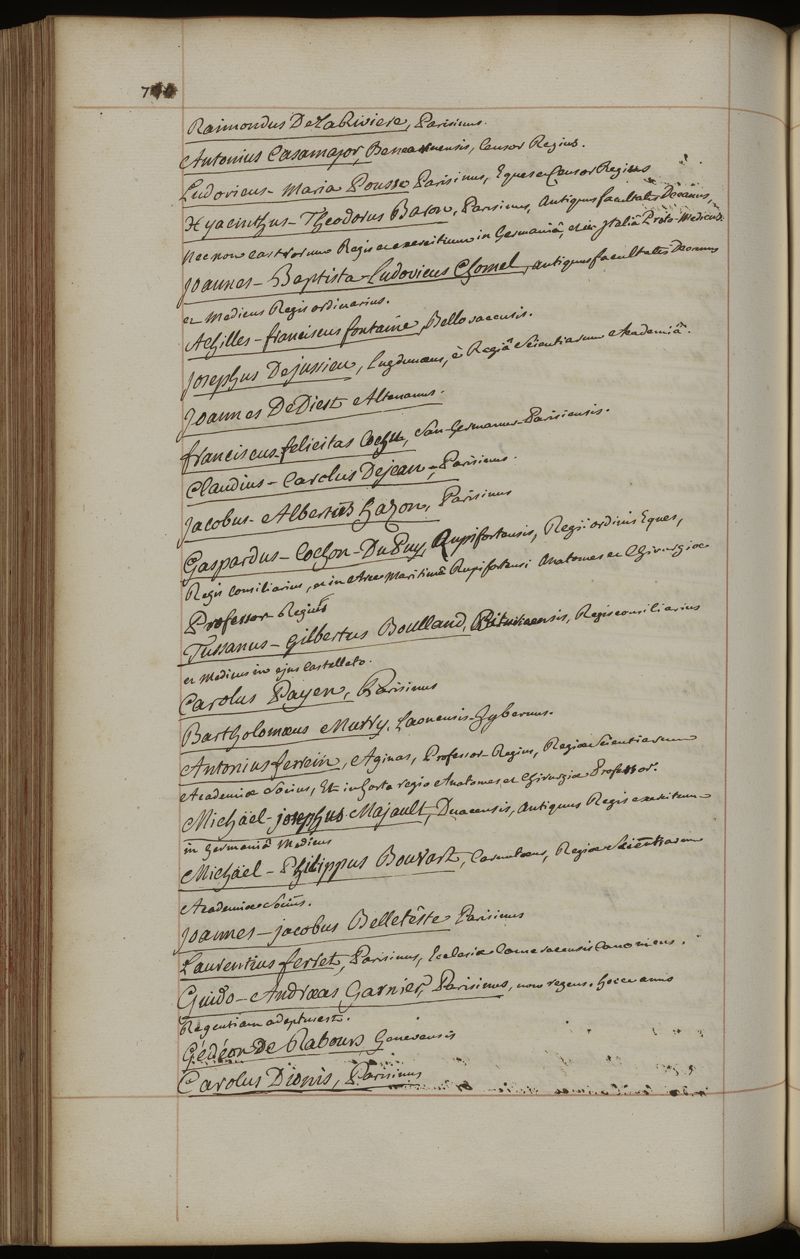 Raimondus DeLaRiviere, Parisinus.
Antonius Casamajor, Benearnensis, Censor Regius.
Ludovicus-Maria Pousse Parisinus, Eques et Censor Regius
Hyacinthus-Theodorus Baron, Parisinus, Antiquus facultatis Decanus,
Necnon Castrorum Regis et exercituum in Germaniâ, et in Italiâ Proto-Medicus.
Joannes-Baptista-Ludovicus Chomel, antiquus facultatis Decanus
et Medicus Regis ordinarius.
Achilles-franciscus fontaine, Bellovacensis.
Josephus Dejussieu, Lugdunæus, è Regiâ Scientiarum Academiâ.
Joannes DeDiest Altenanus.
franciscus-felicitas Cochu, San-Germanus-Parisiensis.
Claudius-Carolus Dejean, Parisinus.
Jacobus-Albertus hazon, Parisinus
Gaspardus-Cochon-DuPuy, Rupifortensis, Regii ordinis Eques,
Regis Consiliarius, et in Arce maritimâ Rupifortensi Anatomes et Chirurgiæ
Professor Regius
Tussanus-gilbertus Boulland, Bituricensis, Regis consiliarius
et Medicus in ejus castelleto.
Carolus Payen, Parisinus
Bartholomæus Murry, Laonensis-hybernus.
Antonius ferrein, Aginas, Professor Regius, Regiæ Scientiarum
Academiæ Socius, Et in horto regio Anatomes et Chirurgiæ Professor.
Michäel-josephus Majault, Duacensis, Antiquus Regis exercituum
in Germaniâ Medicus
Michäel-Philippus Bouvart, Carnutæus, Regiæ Scientiarum
Academiæ Socius.
Joannes-jacobus Belletêste Parisinus
Laurentius ferret, Parisinus, Ecclesiæ Cameracensis Canonicus.
Guido-Andræas Garnier, Parisinus, non regens, hocce anno
Regentiam adeptus est.
Gédéon De Rabours Genevensis
Carolus Dionis, Parisinus